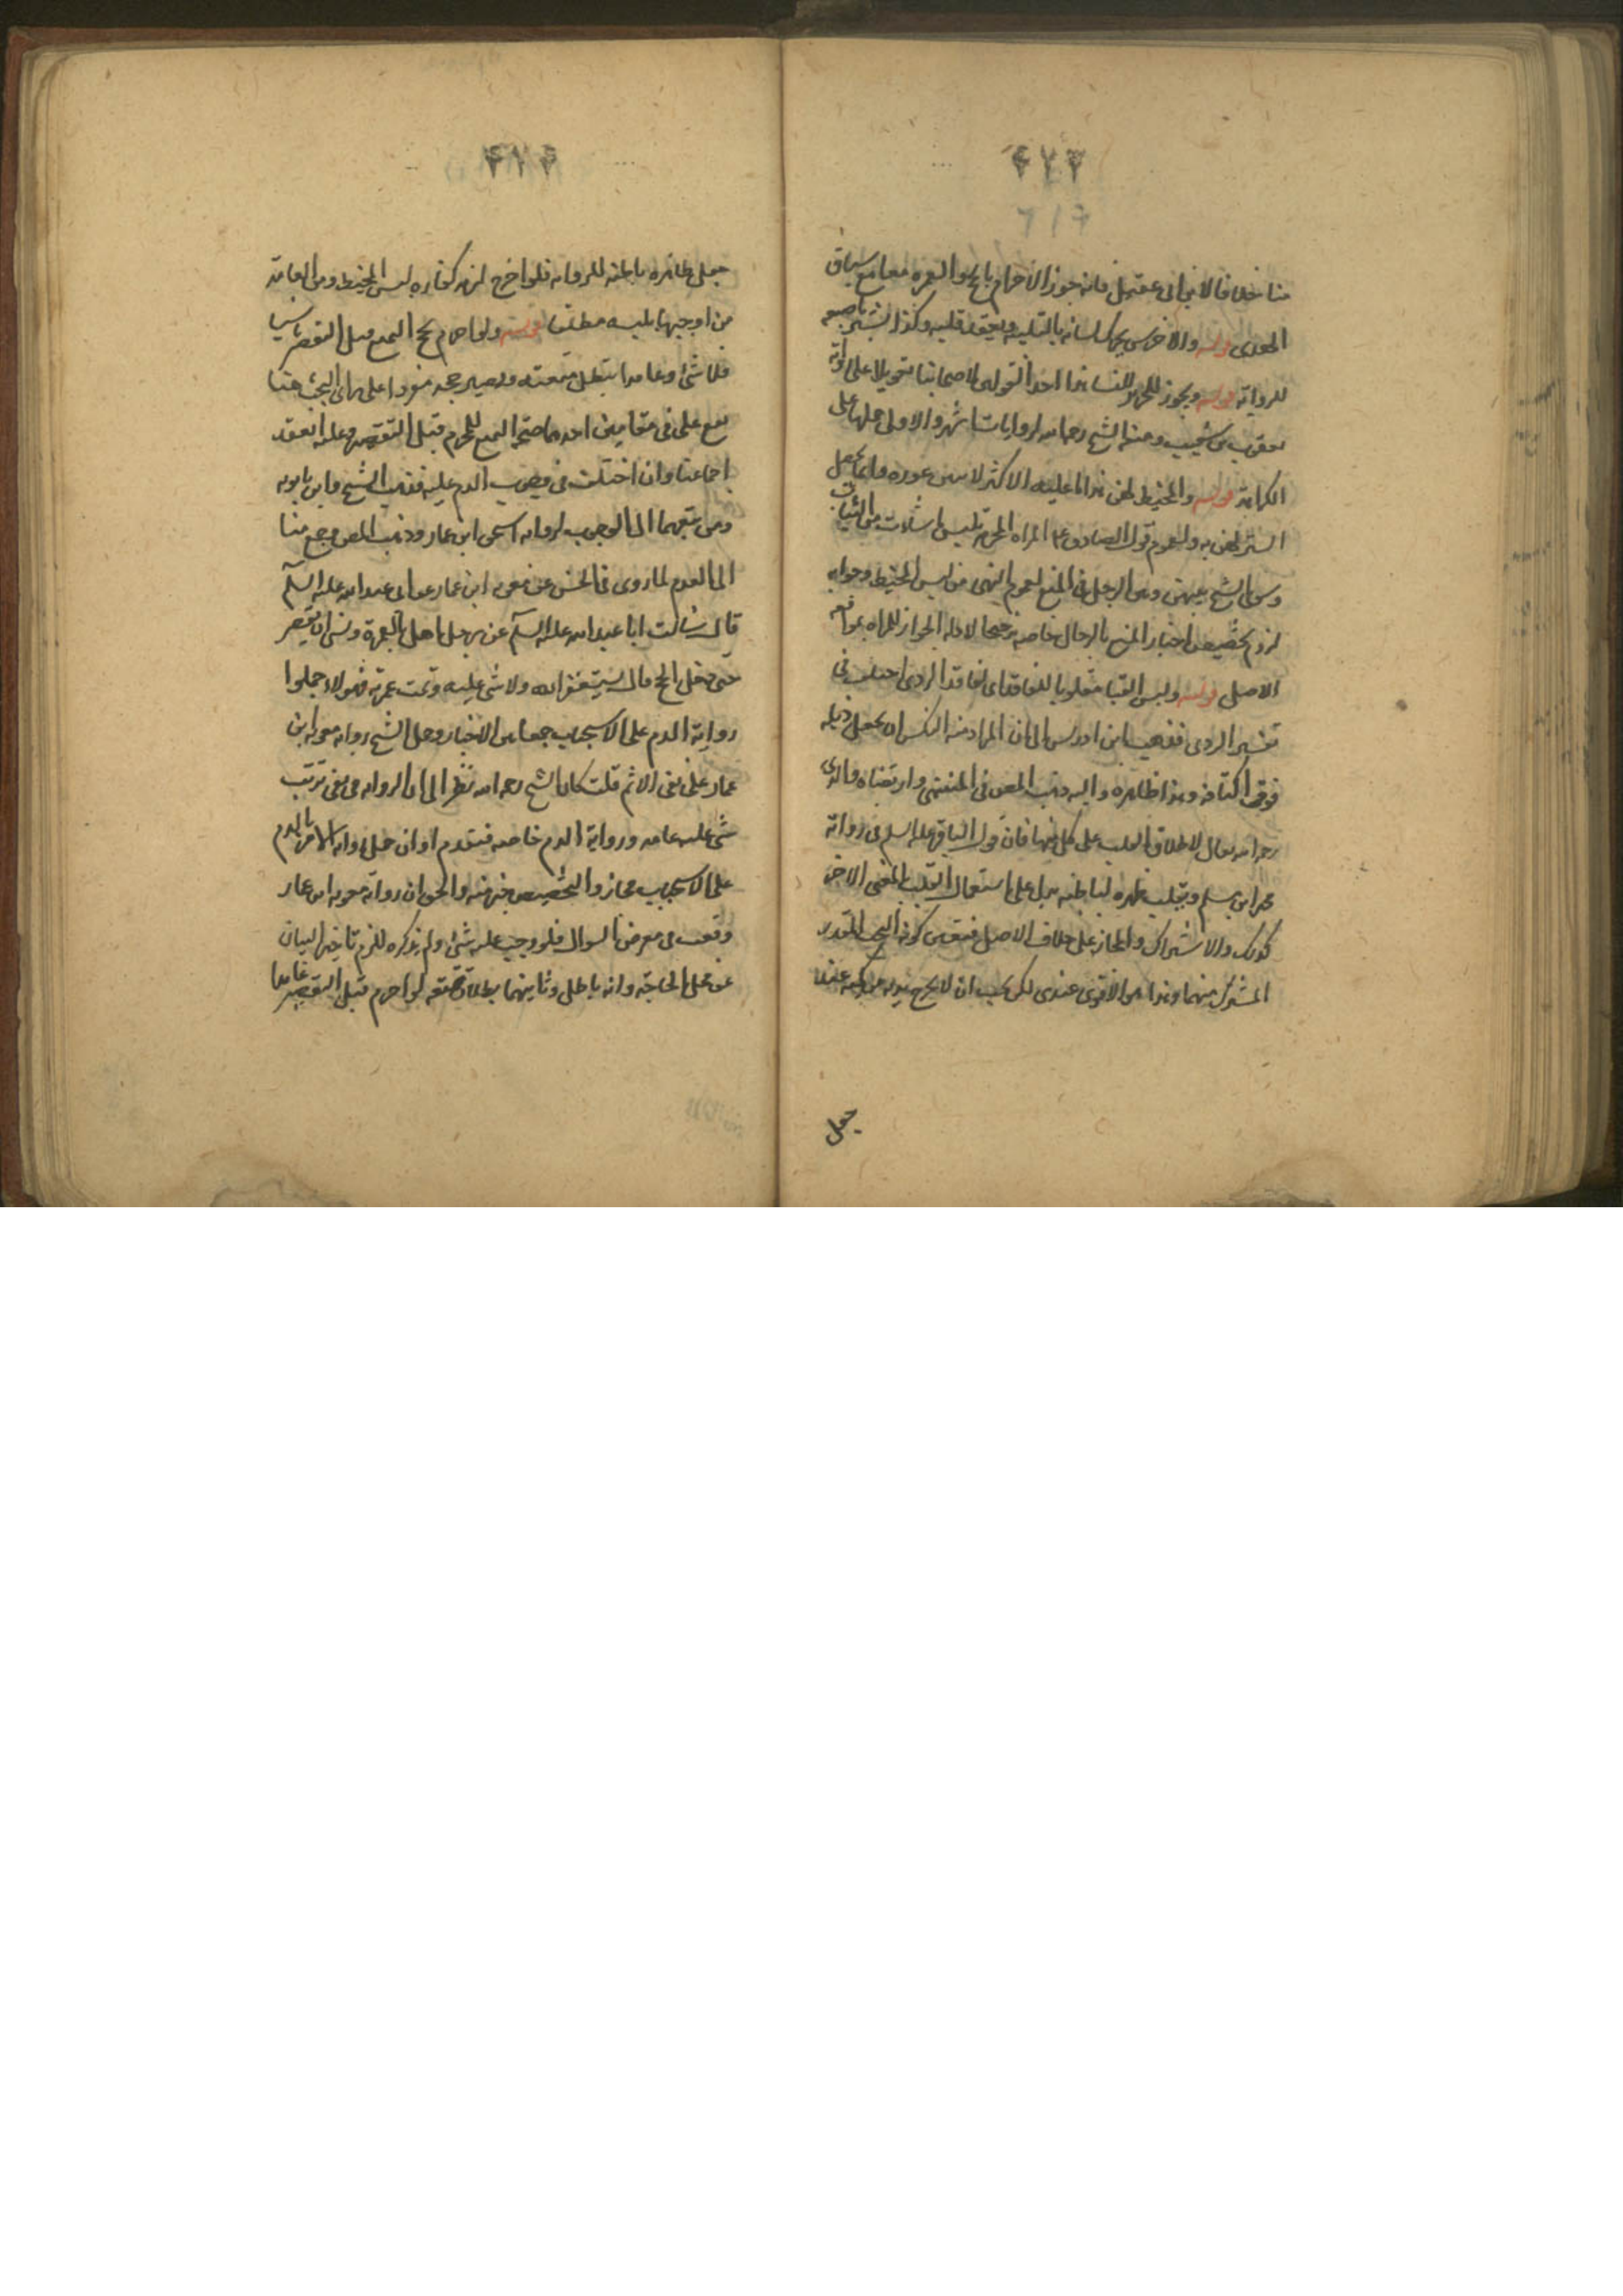 ٤٧٣
منا خلافا لابن ابى عقيل فانه جوز الاحرام بالحج والعمرة معا مع سياق
الهدى قوله والاخرس يحرك لسانه بالتلبيه ويعقد قلبه وكذا يشير باصبعه
للرواية قوله ويجوز للنسا هذا احد القولين لاصحابنا تعويلا على رواية
يعقوب بن شعيب ومنعه الشيخ رحمه الله لروايات اشهر والاولى حملها على
الكراهة قوله والمخيط لهن هذا ما عليه الاكثر لانهن عورة وانما يحصل
الستر لهن به ولعموم قول الصادق ع المراة المحرمة تلبس ما شات من الثياب
وسوى الشيخ بينهن وبين الرجل فى المنع لعموم النهى عن لبس المخيط وجوابه
لزوم تخصيص اخبار المنع بالرجال خاصه ترجيحا لادلة الجواز للمراه
الاصل قوله ولبس القبا مقلوبا للفاقد اى لفاقد الردى اختلف فى
تفسير الردى فذهب ابن ادريس الى ان المراد منه النكس اى يجعل ذيله
فوق اكتافه وهذا ظاهره واليه ذهب المص فى المنتهى وارتضاه والدى
رحمه الله تعالى لاطلاق القلب على كل منهما فان قول الباقر عليه السلم فى رواية
محمد ابن مسلم ويقلب ظهره لباطنه يدل على استعمال القلب بالمعنى الاخر
كذلك والاشتراك والمجاز على خلاف الاصل فتعين كونه للقدر
المشترك منهما وهذا هو الاقوى عندى لكن يجب ان لا يخرج يديه من كميه عند
جعل
٤٧٤
جعل ظاهره باطنه للرواية فلو اخرج لزمه كفارة لبس المخيط ومن العامة
من اوجبها بلبسه مطلقا قوله ولو احرم بحج التمتع قبل التقصير ناسيا
فلا شئ وعامدا تبطل متعته ويصير حجه مفردا على راى البحث هنا
يقع على فى مقامين احدهما صحة التمتع للمحرم قبل التقصير وعليه انعقد
اجماعنا وان اختلف فى وجوب الدم عليه فذهب الشيخ وابن بابويه
ومن تبعهما الى الوجوب لرواية اسحق ابن عمار وذهب المص وجمع منا
الى العدم لما روى فى الحسن عن معويه ابن عمار عن ابى عبد الله عليه السلم
قال سالت ابا عبد الله عليه السلم عن رجل اهل بالعمرة ونسى ان يقصر
حتى دخل الحج قال يستغفر الله ولا شئ عليه وتمت عمرته فهولاء حملوا
رواية الدم على الاستحباب جمعا بين الاخبار وحمل الشيخ رواية معوية ابن
عمار على نفى الاثم قلت كان الشيخ رحمه الله نظر الى ان الرواية فى نفى ترتب
شئ عليه عامه ورواية الدم خاصه فتقدم او ان حمل رواية الامر بالدم
على الاستحباب مجاز والتخصيص خير منه والحق ان رواية معويه ابن عمار
وقعت فى معرض السوال فلو وجب عليه شئ ولم يذكره للزم تاخير البيان
عن محل الحاجة وانه باطل وثانيهما بطلان متعته لو احرم قبل التقصير عامدا